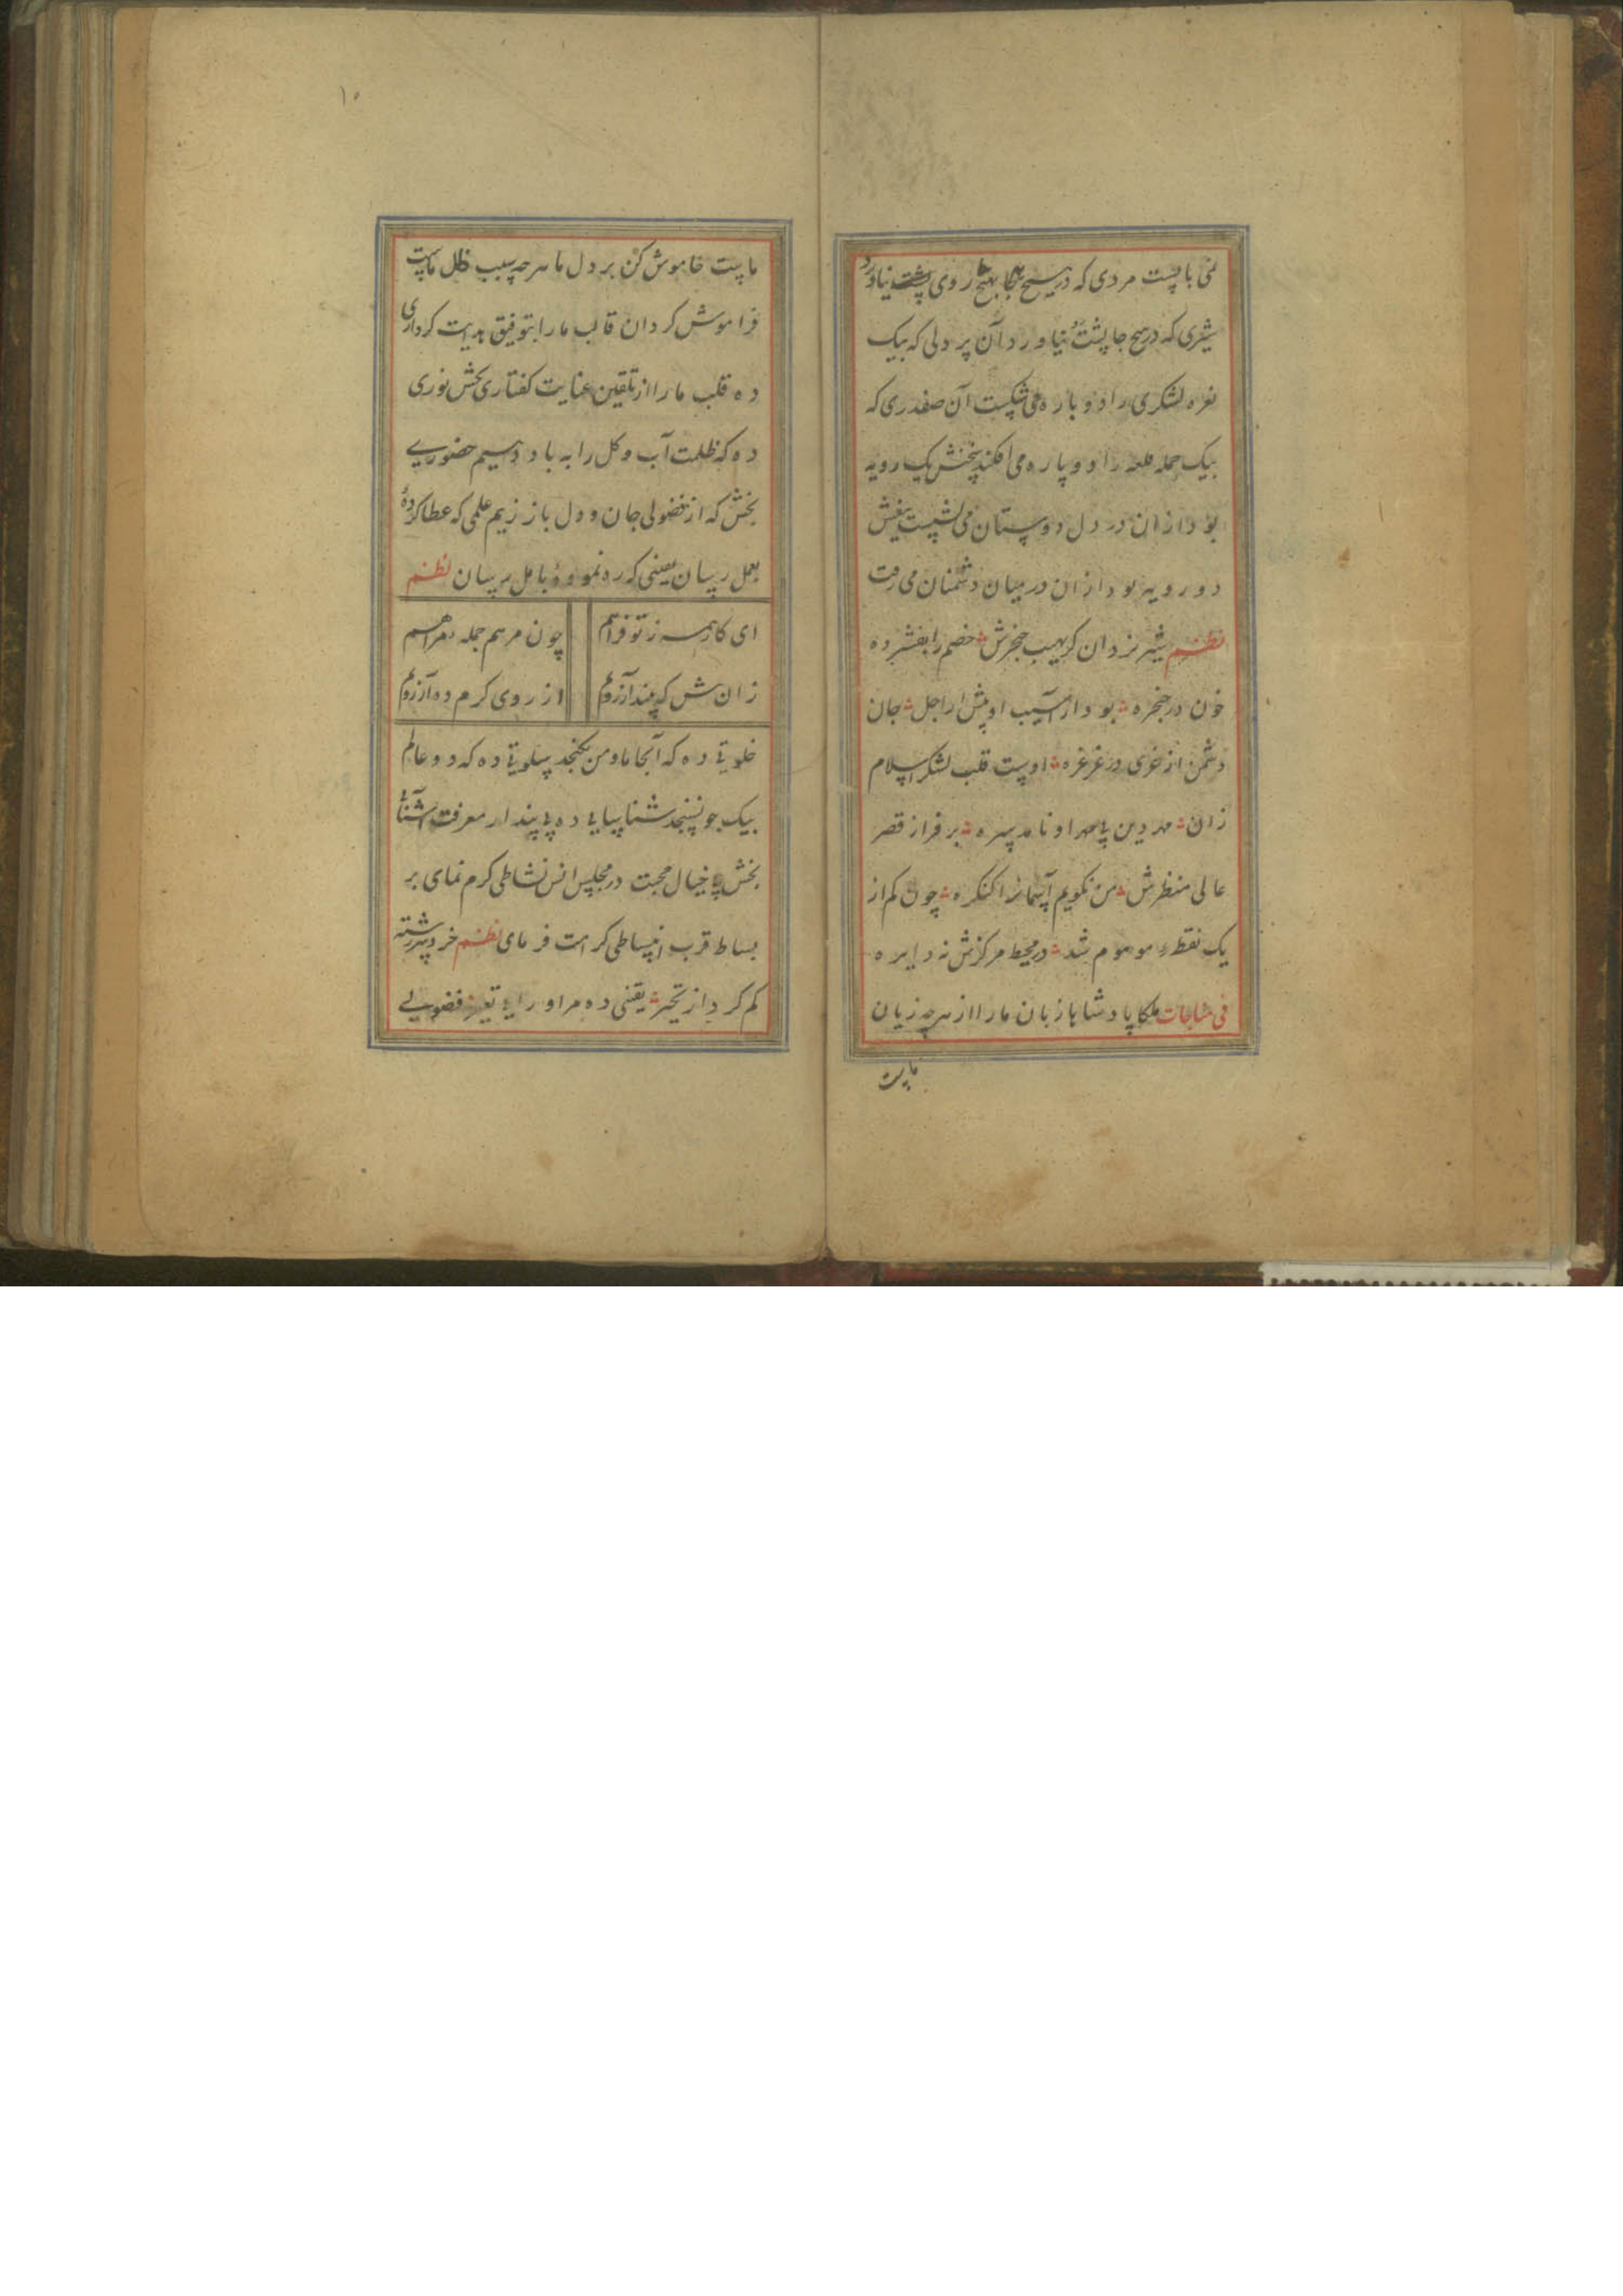 مردی که در هیچ بهیچ روی پشت نیاورد
شیری که در هیچ جا پشت نیاورد آن پر دلی که بیک
نعره لشکری را دو باره می شکست آن صفدری که
بیک حمله قلعه را دو پاره می افکند یک رویه
بود ازان در دل دوستان می نشست تیغش
دو رویه بود ازان در میان دشمنان می رفت
نظم شیر یزدان کز نهیب خنجرش خصم را بفشرده
خون در حنجره بود از آسیب او پیش از اجل جان
دشمن از غری در غرغره اوست قلب لشکر اسلام
زان مهر دین بی مهر او نامد سره بر فراز قصر
عالی منظرش من نگویم آسمانرا کنگره چون کم از
یک نقطهٔ موهوم شد در محیط مرکزش نه دایره
فی مناجات ملکا پادشاها زبان ما را از هر چه زیان
ماست
۱۰
ماست خاموش کن بر دل ما هر چه سبب خلل ماست
فراموش کردان قالب ما را بتوفیق هدایت کرداری
ده قلب ما را از تلقین عنایت کفتاری بخش نوری
ده که ظلمت آب و کل را به باد دهیم حضوری
بخش که از فضولی جان و دل باز رهیم علمی که عطا کردهٔ
بعمل رسان یعنی که ره نمودهٔ بامل برسان نظم
ای کار همه ز تو فراهم
چون مرهم جمله هم
زان پیش که پند آرزویم
از روی کرم ده آرزویم
خلوتی ده که آنجا ما و من نکنجد سلوتی ده که دو عالم
بیک جو نسنجد شناسایی ده بی پندار معرفت آشنائی
بخش بی خیال محبت در مجلس انس نشاطی کرم نمای بر
بساط قرب انبساطی کرامت فرمای نظم خرد سررشته
کم کرد از تحیر یقینی ده مر او را بی فضولی